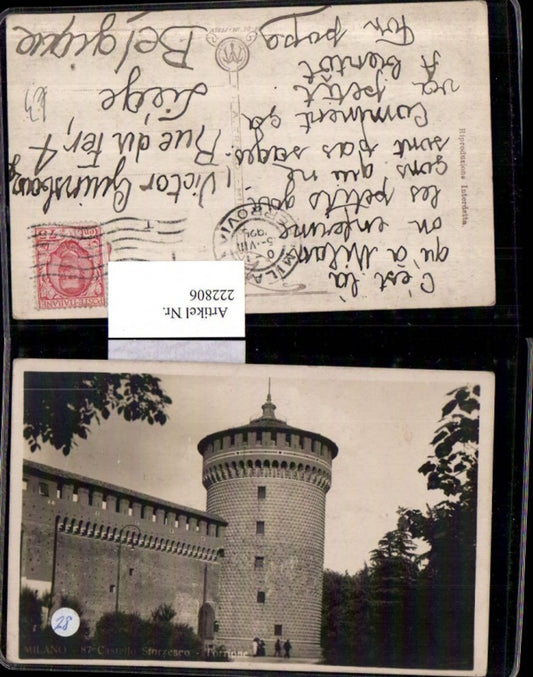 C'est là
qu'à Milano
on enferme
les petits gar
çons qui ne
sont pas sages.
Comment ça
va petit
A bientôt
Ton papa
Victor
Rue du Fer, 4
Liège
Belgique
Riproduzione Interdetta
MILA
FERROVIA
POSTE ITALIANE
Artikel Nr.
222806
28
MILANO - 87 Castello Sforzesco - Torrione